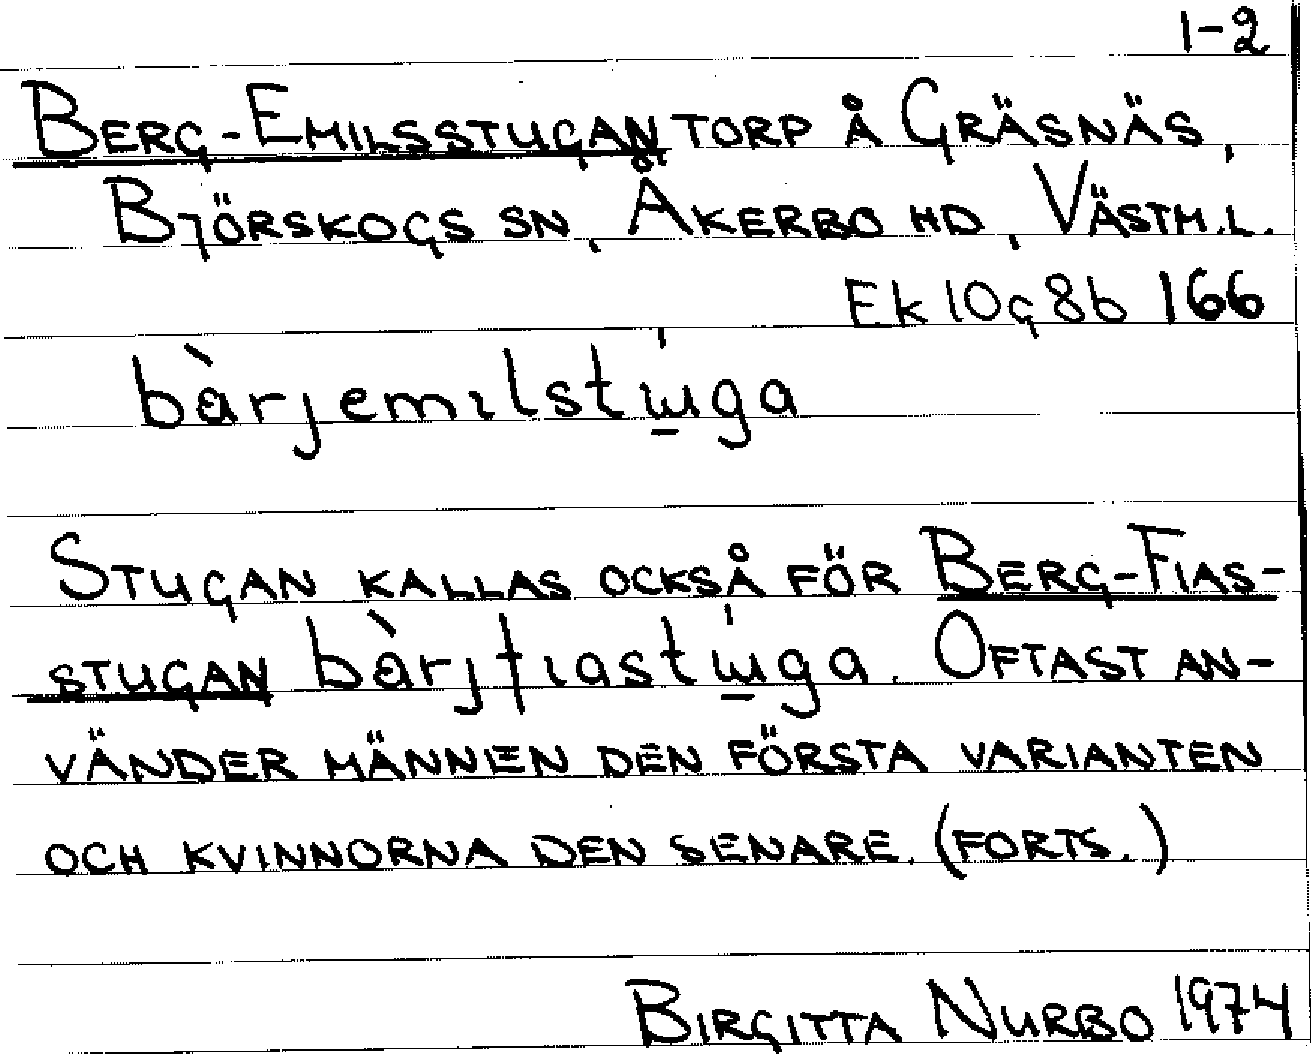 1-2
BERG-EMILSSTUGAN TORP Å GRÄSNÄS,
BJÖRSKOGS SN, ÅKERBO HD, VÄSTM.L.
Ek 10g 8b 166
bàrjemılstɯ̱́ga
STUGAN KALLAS OCKSÅ FÖR BERG-FIAS-
STUGAN bàrjfıastɯ̱́ga. OFTAST AN-
VÄNDER MÄNNEN DEN FÖRSTA VARIANTEN
OCH KVINNORNA DEN SENARE. (FORTS.)
BIRGITTA NURBO 1974